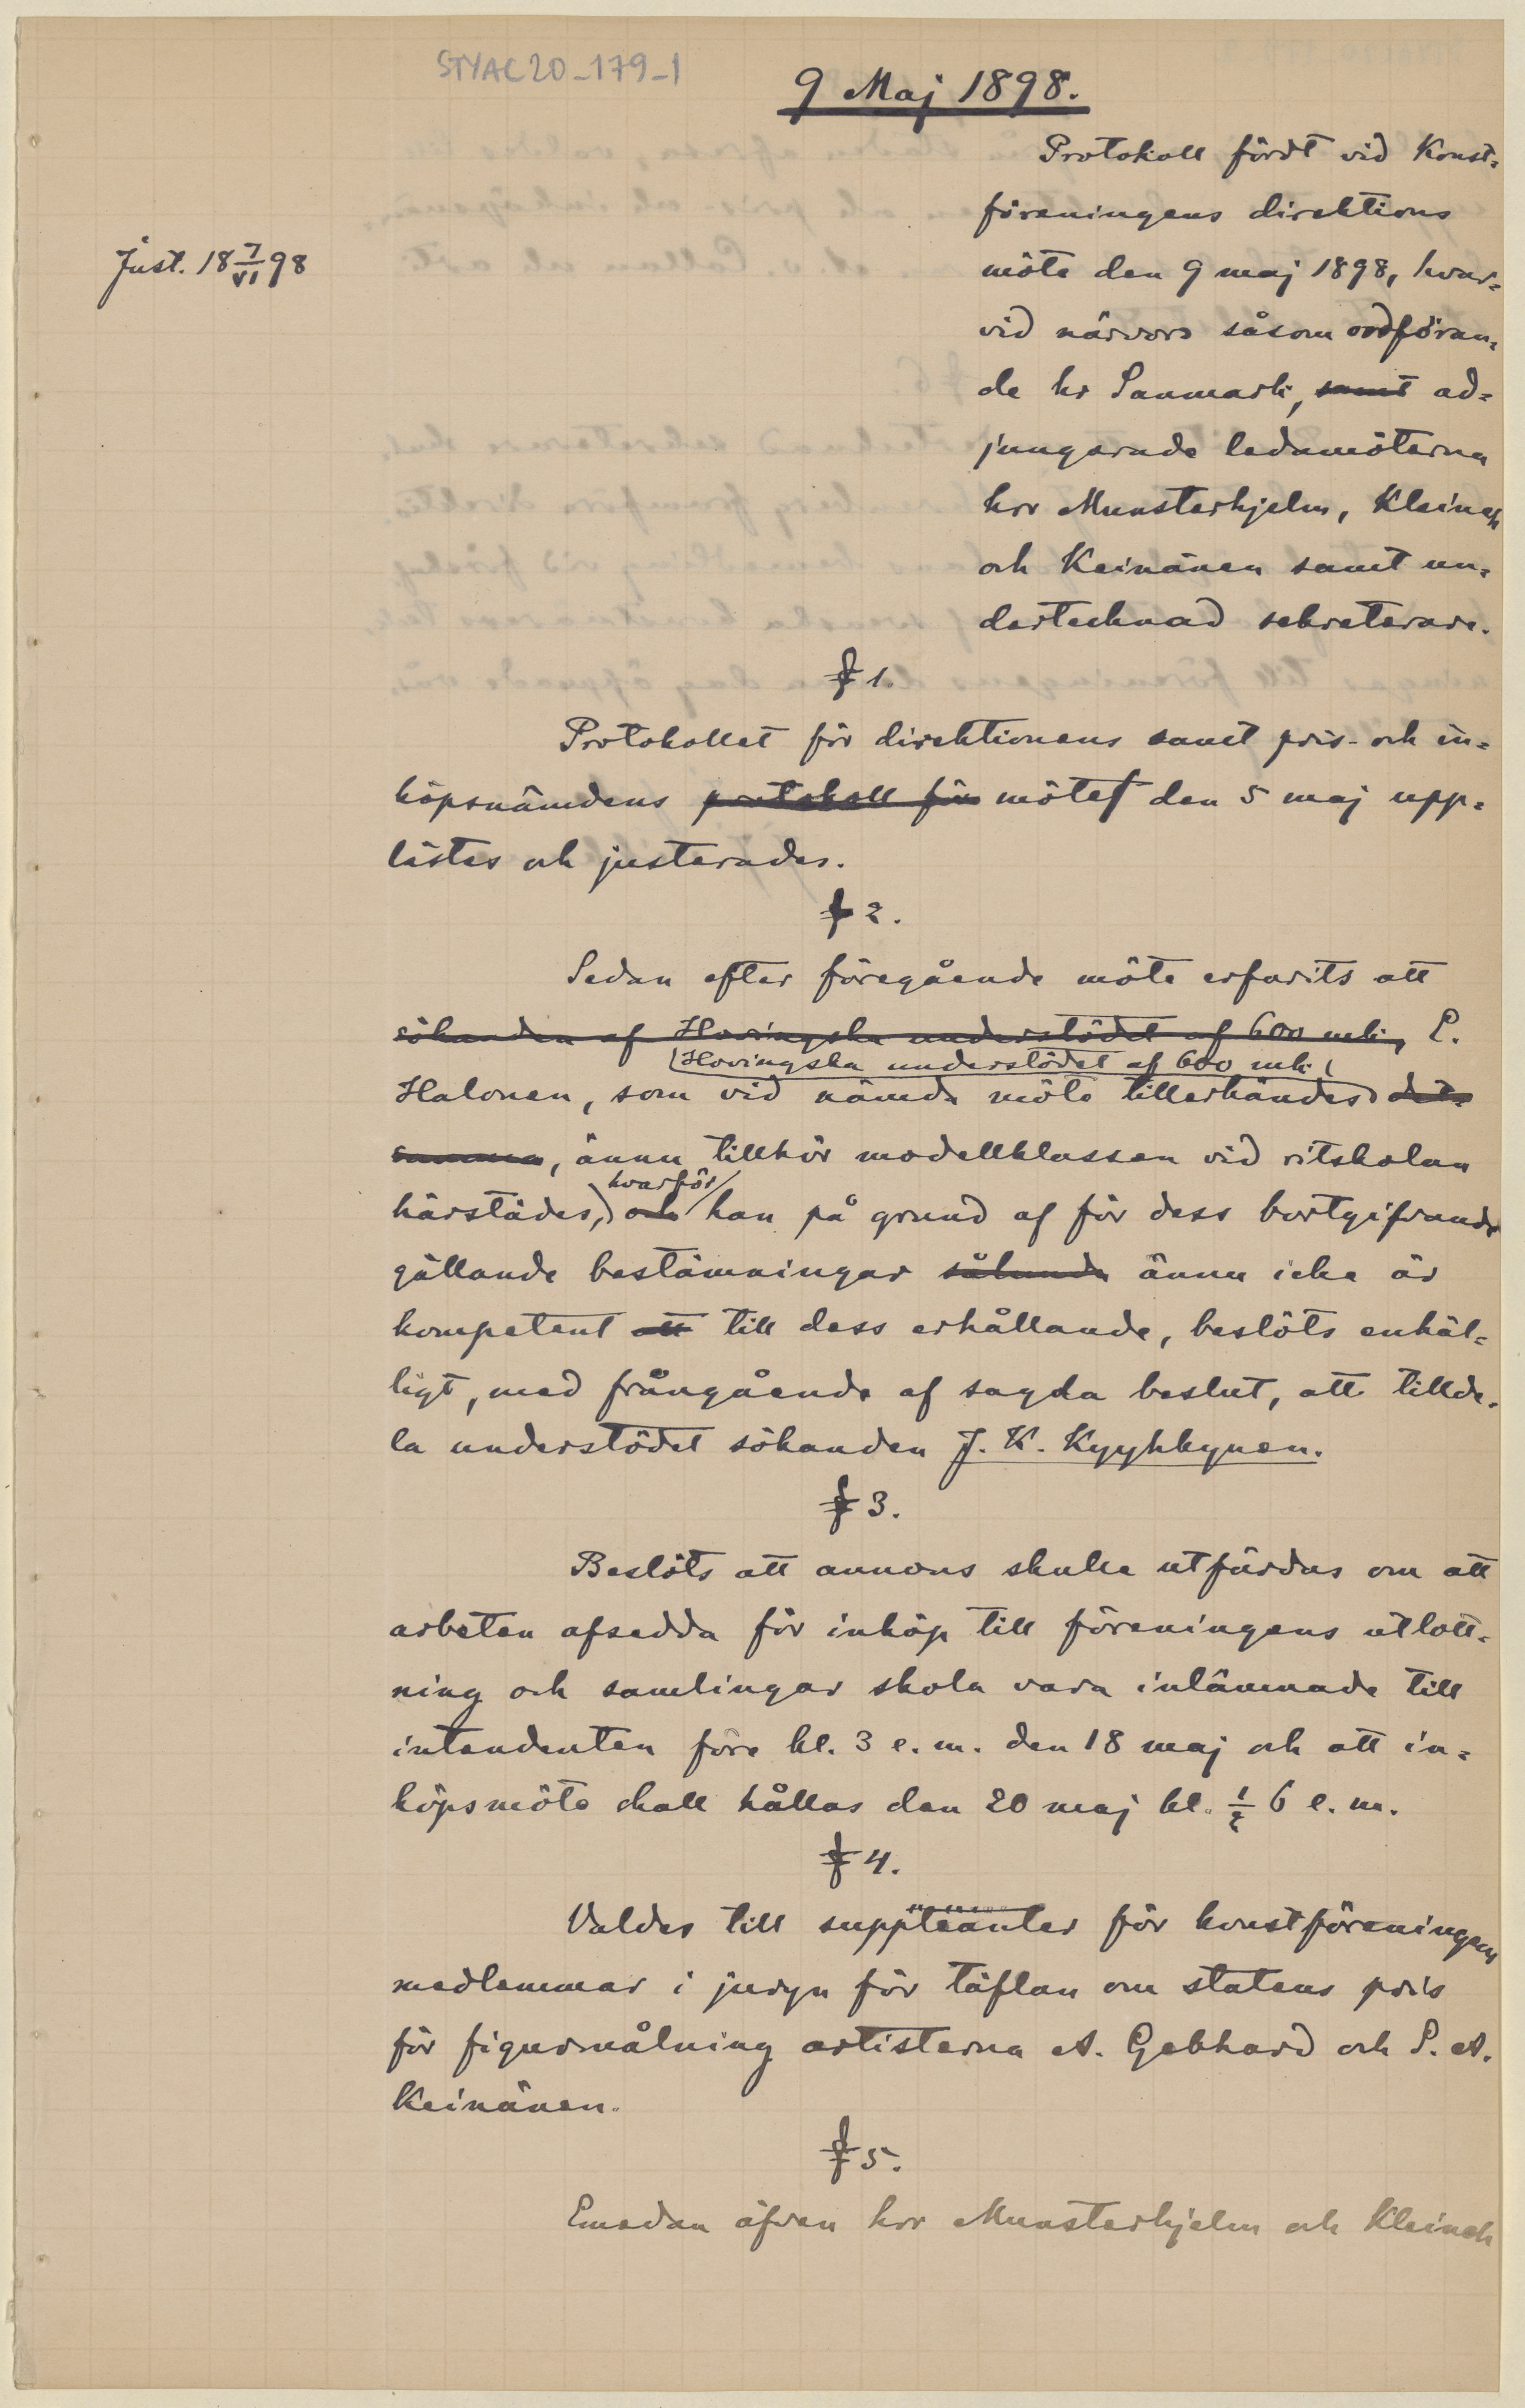 STYAC20_179_1
9 Maj 1898.
Protokoll fördt vid Konst=
föreningens direktions
möte den 9 maj 1898, hvar=
vid närvoro såsom ordföran=
de hr Sanmark, samt ad=
jungerade ledamöterna
hrr Munsterhjelm, Kleineh
och Keinänen samt un=
dertecknad sekreterare.
Just. 18 7/VI 98
§ 1.
Protokollet för direktionens samt pris- och in=
köpsnämdens protokoll för mötet den 5 maj upp=
lästes och justerades.
§ 2.
Sedan efter föregående möte erfarits att
sökanden af Hovingska understödet af 600 mk, E.
Hovingska understödet af 600 mk.
Halonen, som vid nämda möte tillerkändes det=
samma, ännu tillhör modellklassen vid ritskolan
hvarför
härstädes, och han på grund af för dess bortgifvande
gällande bestämningar sålunda ännu icke är
kompetent att till dess erhållande, beslöts enhäl=
ligt, med frångående af sagda beslut, att tillde=
la understödet sökanden J. K. Kyyhkynen.
§ 3.
Beslöts att annons skulle utfärdas om att
arbeten afsedda för inköp till föreningens utlott=
ning och samlingar skola vara inlämnade till
intendenten före kl. 3 e. m. den 18 maj och att in=
köpsmöte skall hållas den 20 maj kl. ½ 6 e. m.
§ 4.
Valdes till suppleanter för konstföreningens
medlemmar i juryn för täflan om statens pris
för figurmålning artisterna A. Gebhard och S. A.
Keinänen.
§ 5.
Emedan äfven hrr Munsterhjelm och Kleineh